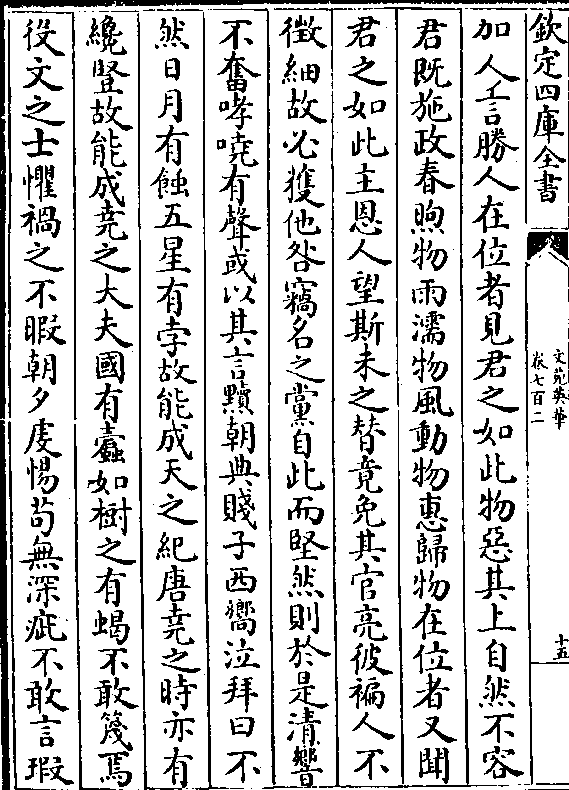 欽定四庫全書
文苑英華
卷七百二
十五
加人言勝人在位者見君之如此物惡其上自然不容
君既施政春煦物雨濡物風動物惠歸物在位者又聞
君之如此主恩人望斯未之替竟免其官亮彼褊人不
徴細故必獲他咎竊名之黨自此而堅然則於是清響
不奮哮嘵有聲或以其言黷朝典賤子西嚮泣拜曰不
然日月有蝕五星有孛故能成天之紀唐堯之時亦有
纔豎故能成堯之大夫國有蠧如樹之有蝎不敢篾焉
役文之士懼禍之不暇朝夕虔惕茍無深疵不敢言瑕